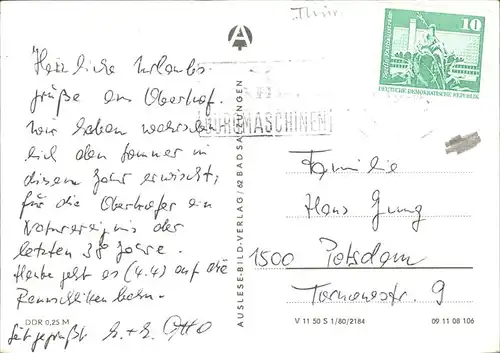 Thür.
10
DEUTSCHE DEMOKRATISCHE REPUBLIK
BÜROMASCHINEN
Herzliche Urlaubs-
grüße aus Oberhof.
Wir haben wahrschein
lich den Sommer in
diesem Jahr erwischt;
für die Oberhofer ein
Naturereignis der
letzten 38 Jahre.
Heute geht es (4.4) auf die
Rennschlittenbahn.
Seid gegrüßt E. + E. Otto
DDR 0,25 M
AUSLESE-BILD-VERLAG / 62 BAD SALZUNGEN
Familie
Hans Jung
1500 Potsdam
Tornowstr. 9
V 11 50 S 1/80/2184
09 11 08 106